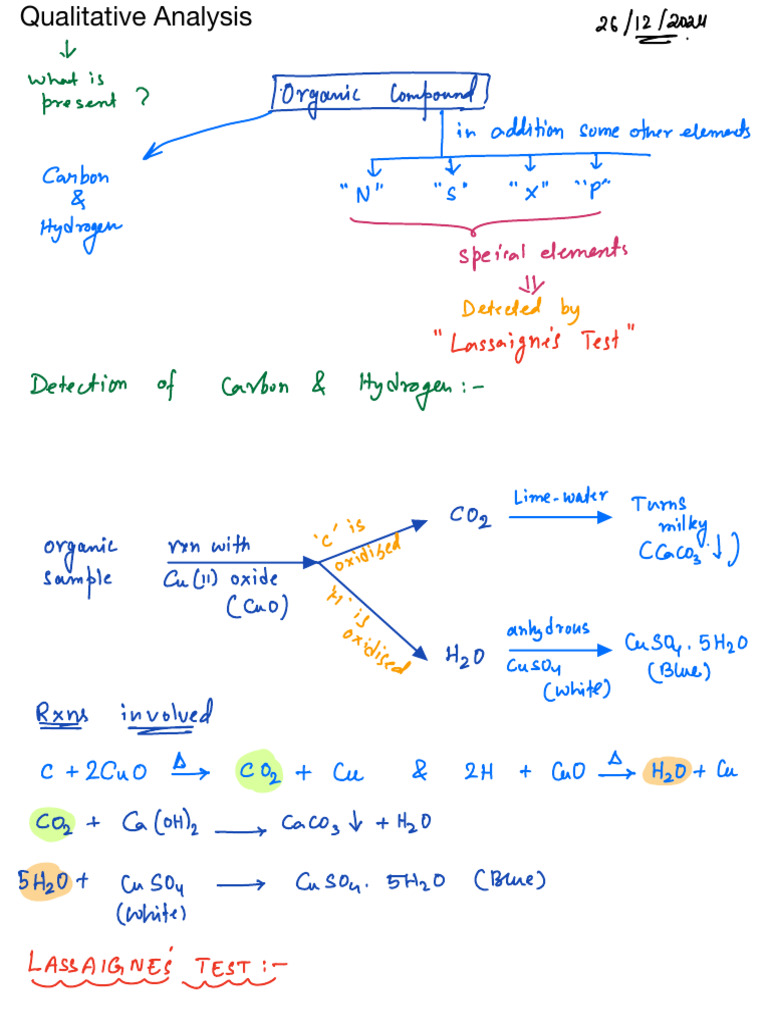 Qualitative Analysis
26/12/2024
What is
present ?
Organic Compound
in addition some other elements
Carbon
&
Hydrogen
"N" "S" "X" "P"
speical elements
Detected by
"Lassaigne's Test"
Detection of Carbon & Hydrogen :-
organic
sample
rxn with
Cu(II) oxide
(CuO)
'C' is
oxidised
CO2
Lime-water
Turns
milky
(CaCO3 ↓)
'H' is
oxidised
H2O
anhydrous
CuSO4
(White)
CuSO4. 5H2O
(Blue)
Rxns involved
C + 2CuO Δ→ CO2 + Cu & 2H + CuO Δ→ H2O + Cu
CO2 + Ca(OH)2 → CaCO3 ↓ + H2O
5H2O + CuSO4 → CuSO4. 5H2O (Blue)
(White)
LASSAIGNE'S TEST :-